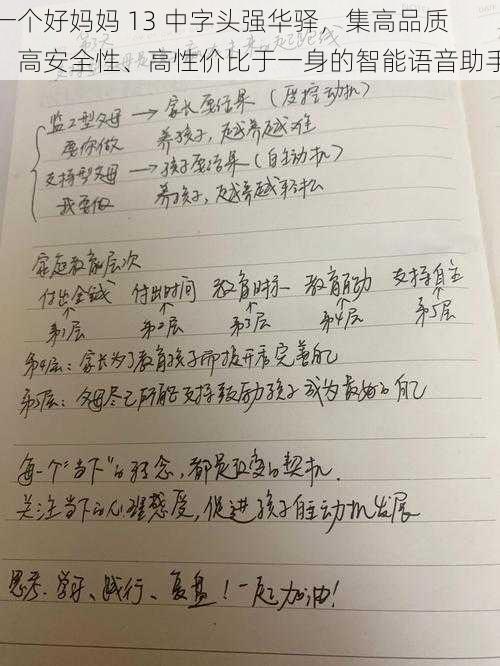 一个好妈妈 13 中字头强华驿，集高品质
高安全性、高性价比于一身的智能语音助手
监工型父母 → 家长要结果（摇控动机）
要你做 养孩子，越养越难
支持型父母 → 孩子要结果（自主动机）
我要做 养孩子，越养越轻松
家庭教育层次
付出金钱 付出时间 教育时示 教育互动 支持自主
第1层 第2层 第3层 第4层 第5层
第4层：家长为了教育孩子而提升和完善自己
第5层：父母尽己所能支持鼓励孩子成为最好的自己
每一个“当下”的转念，都是改变的契机．
关注当下的心理感受，促进孩子自主动机发展
思考、学习、践行、复盘！一起加油！